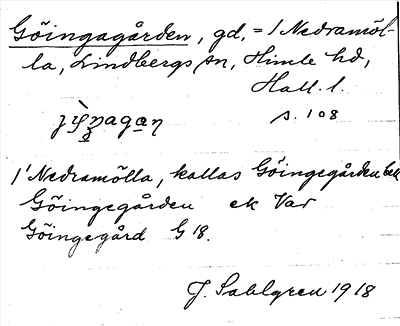 Göingagården, gd, = 1 Nedramöl-
la, Lindbergs sn, Himle hd,
Hall. l.
s. 108
1 Nedramölla, kallas Göingegården
Göingegården ek Var
Göingegård G 18.
J. Sahlgren 1918